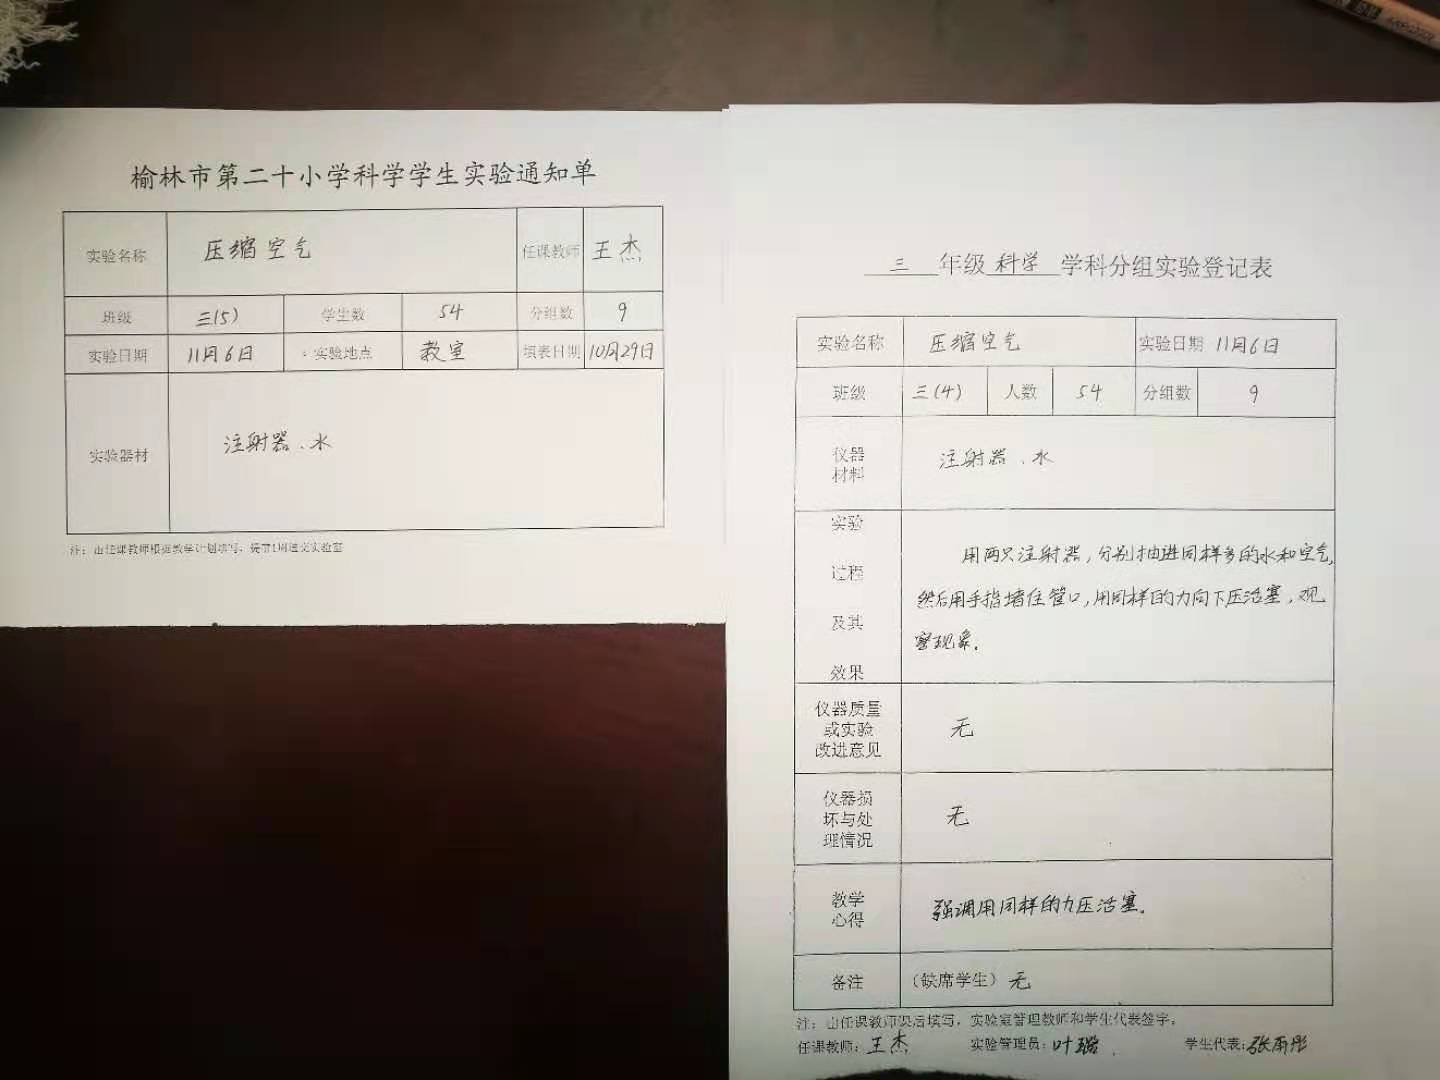 榆林市第二十小学科学学生实验通知单
实验名称 压缩空气 任课教师 王杰
班级 三(5) 学生数 54 分组数 9
实验日期 11月6日 实验地点 教室 填表日期 10月29日
实验器材 注射器、水
注：由任课教师根据教学计划填写，提前1周递交实验室
三 年级 科学 学科分组实验登记表
实验名称 压缩空气 实验日期 11月6日
班级 三(4) 人数 54 分组数 9
仪器
材料
注射器、水
实验
过程
及其
效果
用两只注射器，分别抽进同样多的水和空气，
然后用手指堵住管口，用同样的力向下压活塞，观
察现象。
仪器质量
或实验
改进意见
无
仪器损
坏与处
理情况
无
教学
心得
强调用同样的力压活塞。
备注 (缺席学生) 无
注：由任课教师课后填写，实验室管理教师和学生代表签字。
任课教师：王杰 实验管理员：叶璐 学生代表：张雨彤